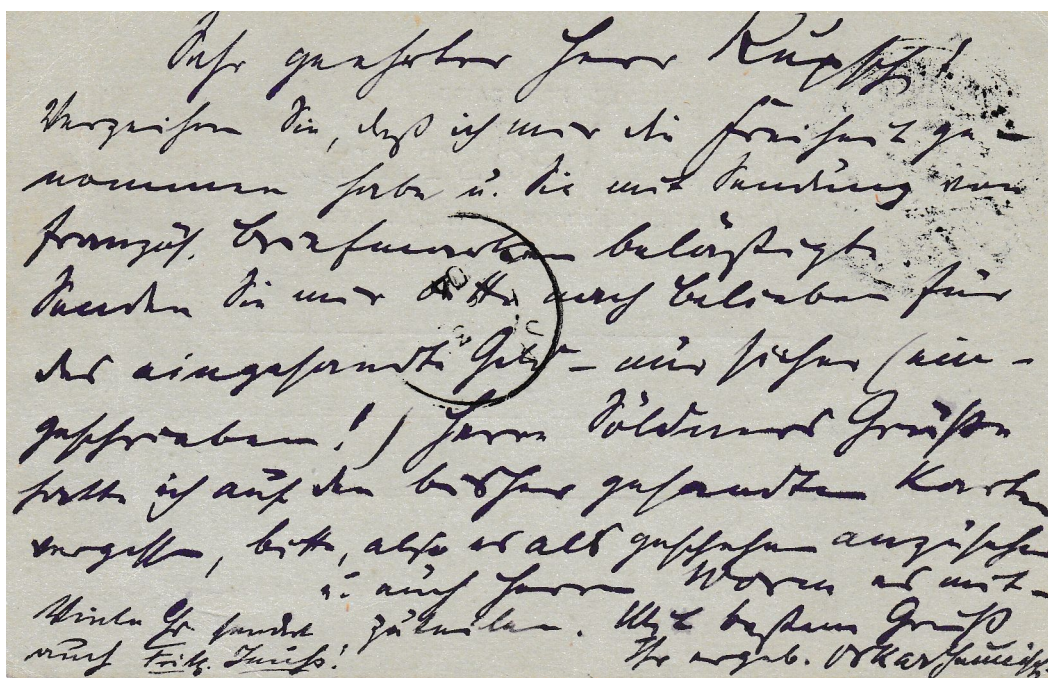 Sehr geehrter Herr Kupsch!
Verzeihen Sie, daß ich mir die Freiheit ge-
nommen habe u. Sie mit Sendung von
französ. Briefmarken belästigt.
Senden Sie mir bitte nach Belieben für
das eingesandte Geld – nur sicher (ein-
geschrieben!) Herrn Söldners Grüße
hatte ich auf den bisher gesandten Karten
vergessen, bitte, also es als geschehen anzusehen
u. auch Herrn Worm es mit-
zuteilen. Mit bestem Gruß
Ihr ergeb. Oskar
Viele Gr. sendet
auch Fritz!